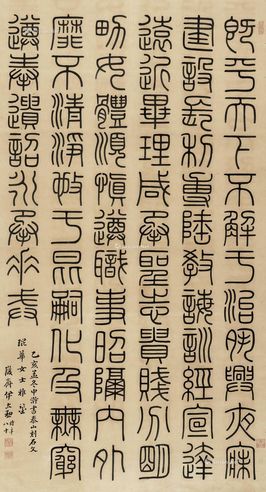 既平天下不解于治夙興夜寐
建設長利專隆教誨訓經宣達
遠近畢理咸承聖志貴賤分明
男女體順慎遵職事昭隔內外
靡不清淨施于昆嗣化及無窮
遵奉遺詔永承重戒
乙亥孟冬中澣書泰山刻石文
琨華女士雅鑒
陖齋伊立勳時年八十